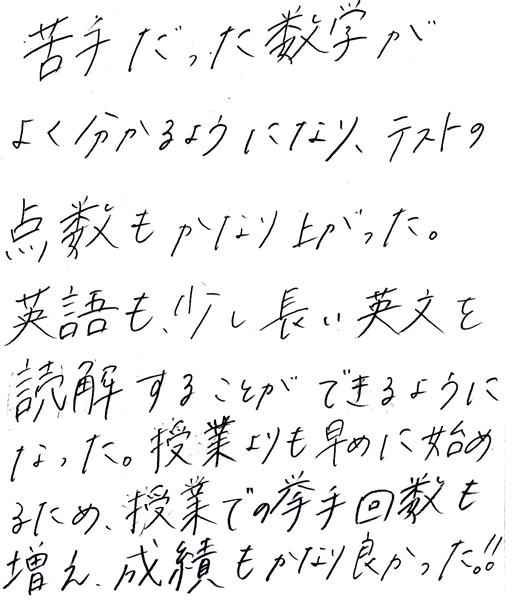 苦手だった数学が
よく分かるようになり、テストの
点数もかなり上がった。
英語も、少し長い英文を
読解することができるように
なった。授業よりも早めに始め
るため、授業での挙手回数も
増え、成績もかなり良かった。!!